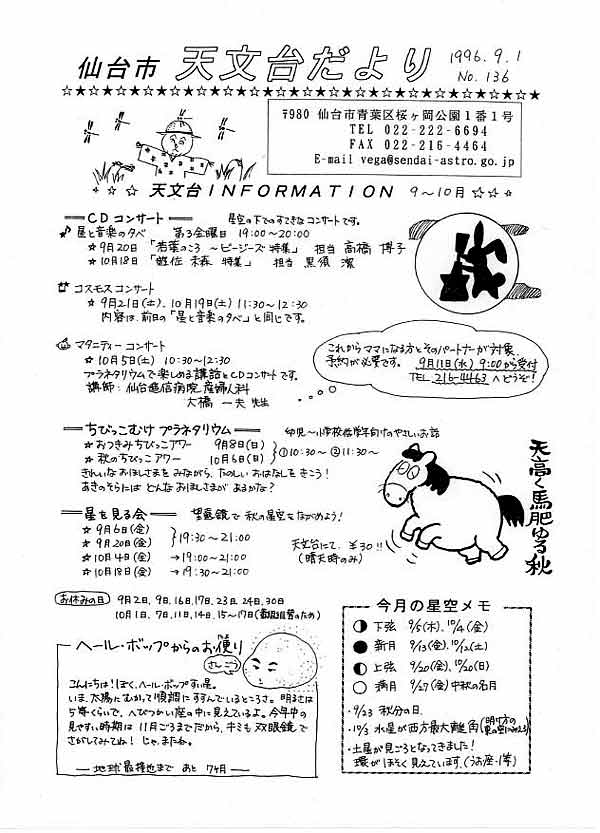 仙台市 天文台だより 1996.9.1
No.136
〒980 仙台市青葉区桜ヶ岡公園1番1号
TEL 022-222-6694
FAX 022-216-4464
E-mail vega@sendai-astro.go.jp
天文台INFORMATION 9〜10月
CDコンサート 星空の下でのすてきなコンサートです。
星と音楽の夕べ 第3金曜日 19:00〜20:00
☆9月20日 「若葉のころ 〜ビージーズ特集」 担当 高橋 博子
☆10月18日 「遊佐 未森 特集」 担当 黒須 潔
コスモスコンサート
☆9月21日(土)、10月19日(土) 11:30〜12:30
内容は、前日の「星と音楽の夕べ」と同じです。
マタニティーコンサート
☆10月5日(土) 10:30〜12:30
プラネタリウムで楽しめる講話とCDコンサートです。
講師:仙台逓信病院産婦人科
大橋 一夫 先生
これからママになる方とそのパートナーが対象。
予約が必要です。 9月11日(水) 9:00から受付
TEL.216-4463へどうぞ!
ちびっこむけ プラネタリウム 幼児〜小学校低学年向けのやさしいお話
☆おつきみちびっこアワー 9月8日(日)
☆秋のちびっこアワー 10月6日(日)
①10:30〜 ②11:30〜
きれいなおほしさまをみながら、たのしいおはなしをきこう!
あきのそらには どんなおほしさまがあるかな?
天高く馬肥ゆる秋
星を見る会 望遠鏡で秋の星空をながめよう!
☆9月6日(金)
☆9月20日(金)
19:30〜21:00
☆10月4日(金) →19:00〜21:00
☆10月18日(金) →19:30〜21:00
天文台にて、¥30!!
(晴天時のみ)
お休みの日 9月2日、9日、16日、17日、23日、24日、30日
10月1日、7日、11日、14日、15〜17日
ヘール・ボップからのお便り
さんごう
こんにちは!ぼく、ヘール・ボップすい星。
いま、太陽にむかって順調にすすんでいるところさ。明るさは
5等くらいで、へびつかい座の中に見えているよ。今年中の
見やすい時期は11月ごろまでだから、キミも双眼鏡で
さがしてみてね! じゃ、またね。
地球最接近まで あと 7ヶ月
今月の星空メモ
下弦 9/5(木)、10/4(金)
新月 9/13(金)、10/12(土)
上弦 9/20(金)、10/20(日)
満月 9/27(金) 中秋の名月
・9/23 秋分の日。
・10/3 水星が西方最大離角(明け方の東の空にみえる)
・土星が見ごろとなってきました!
環がほそく見えています。(うお座・1等)